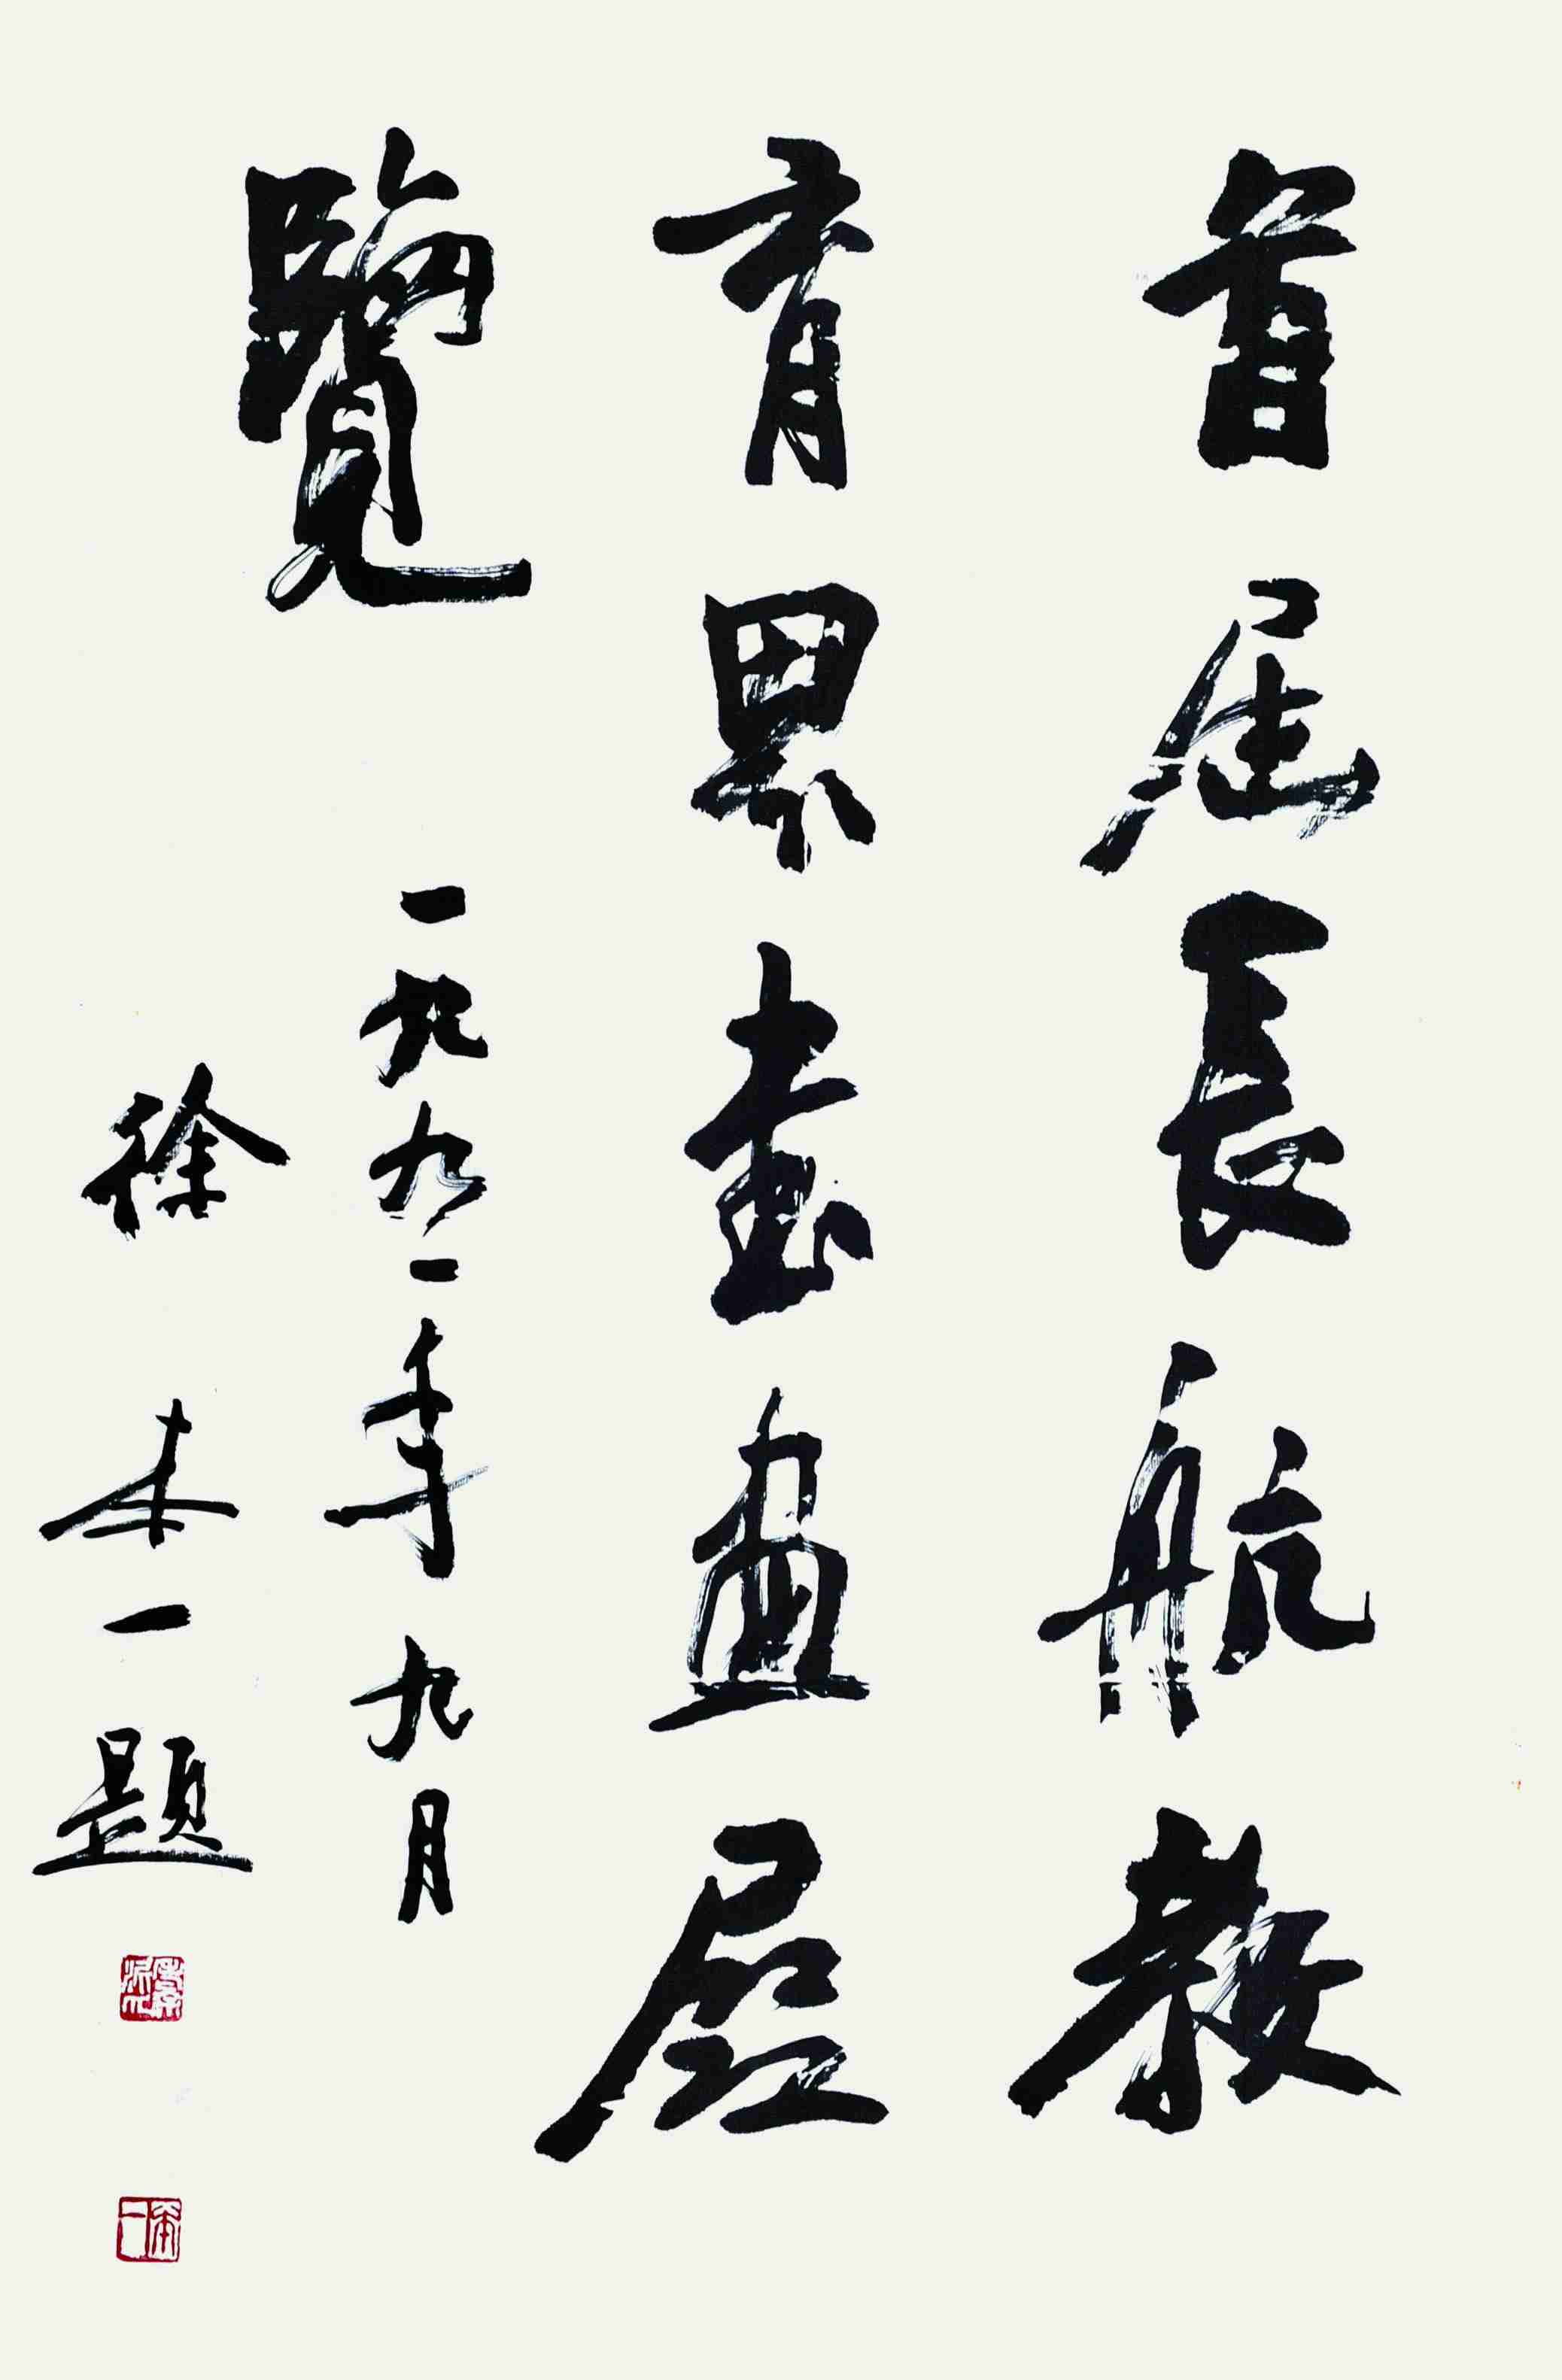 首屆長航教
育界書畫展
覽
一九九一年九月
徐本一題